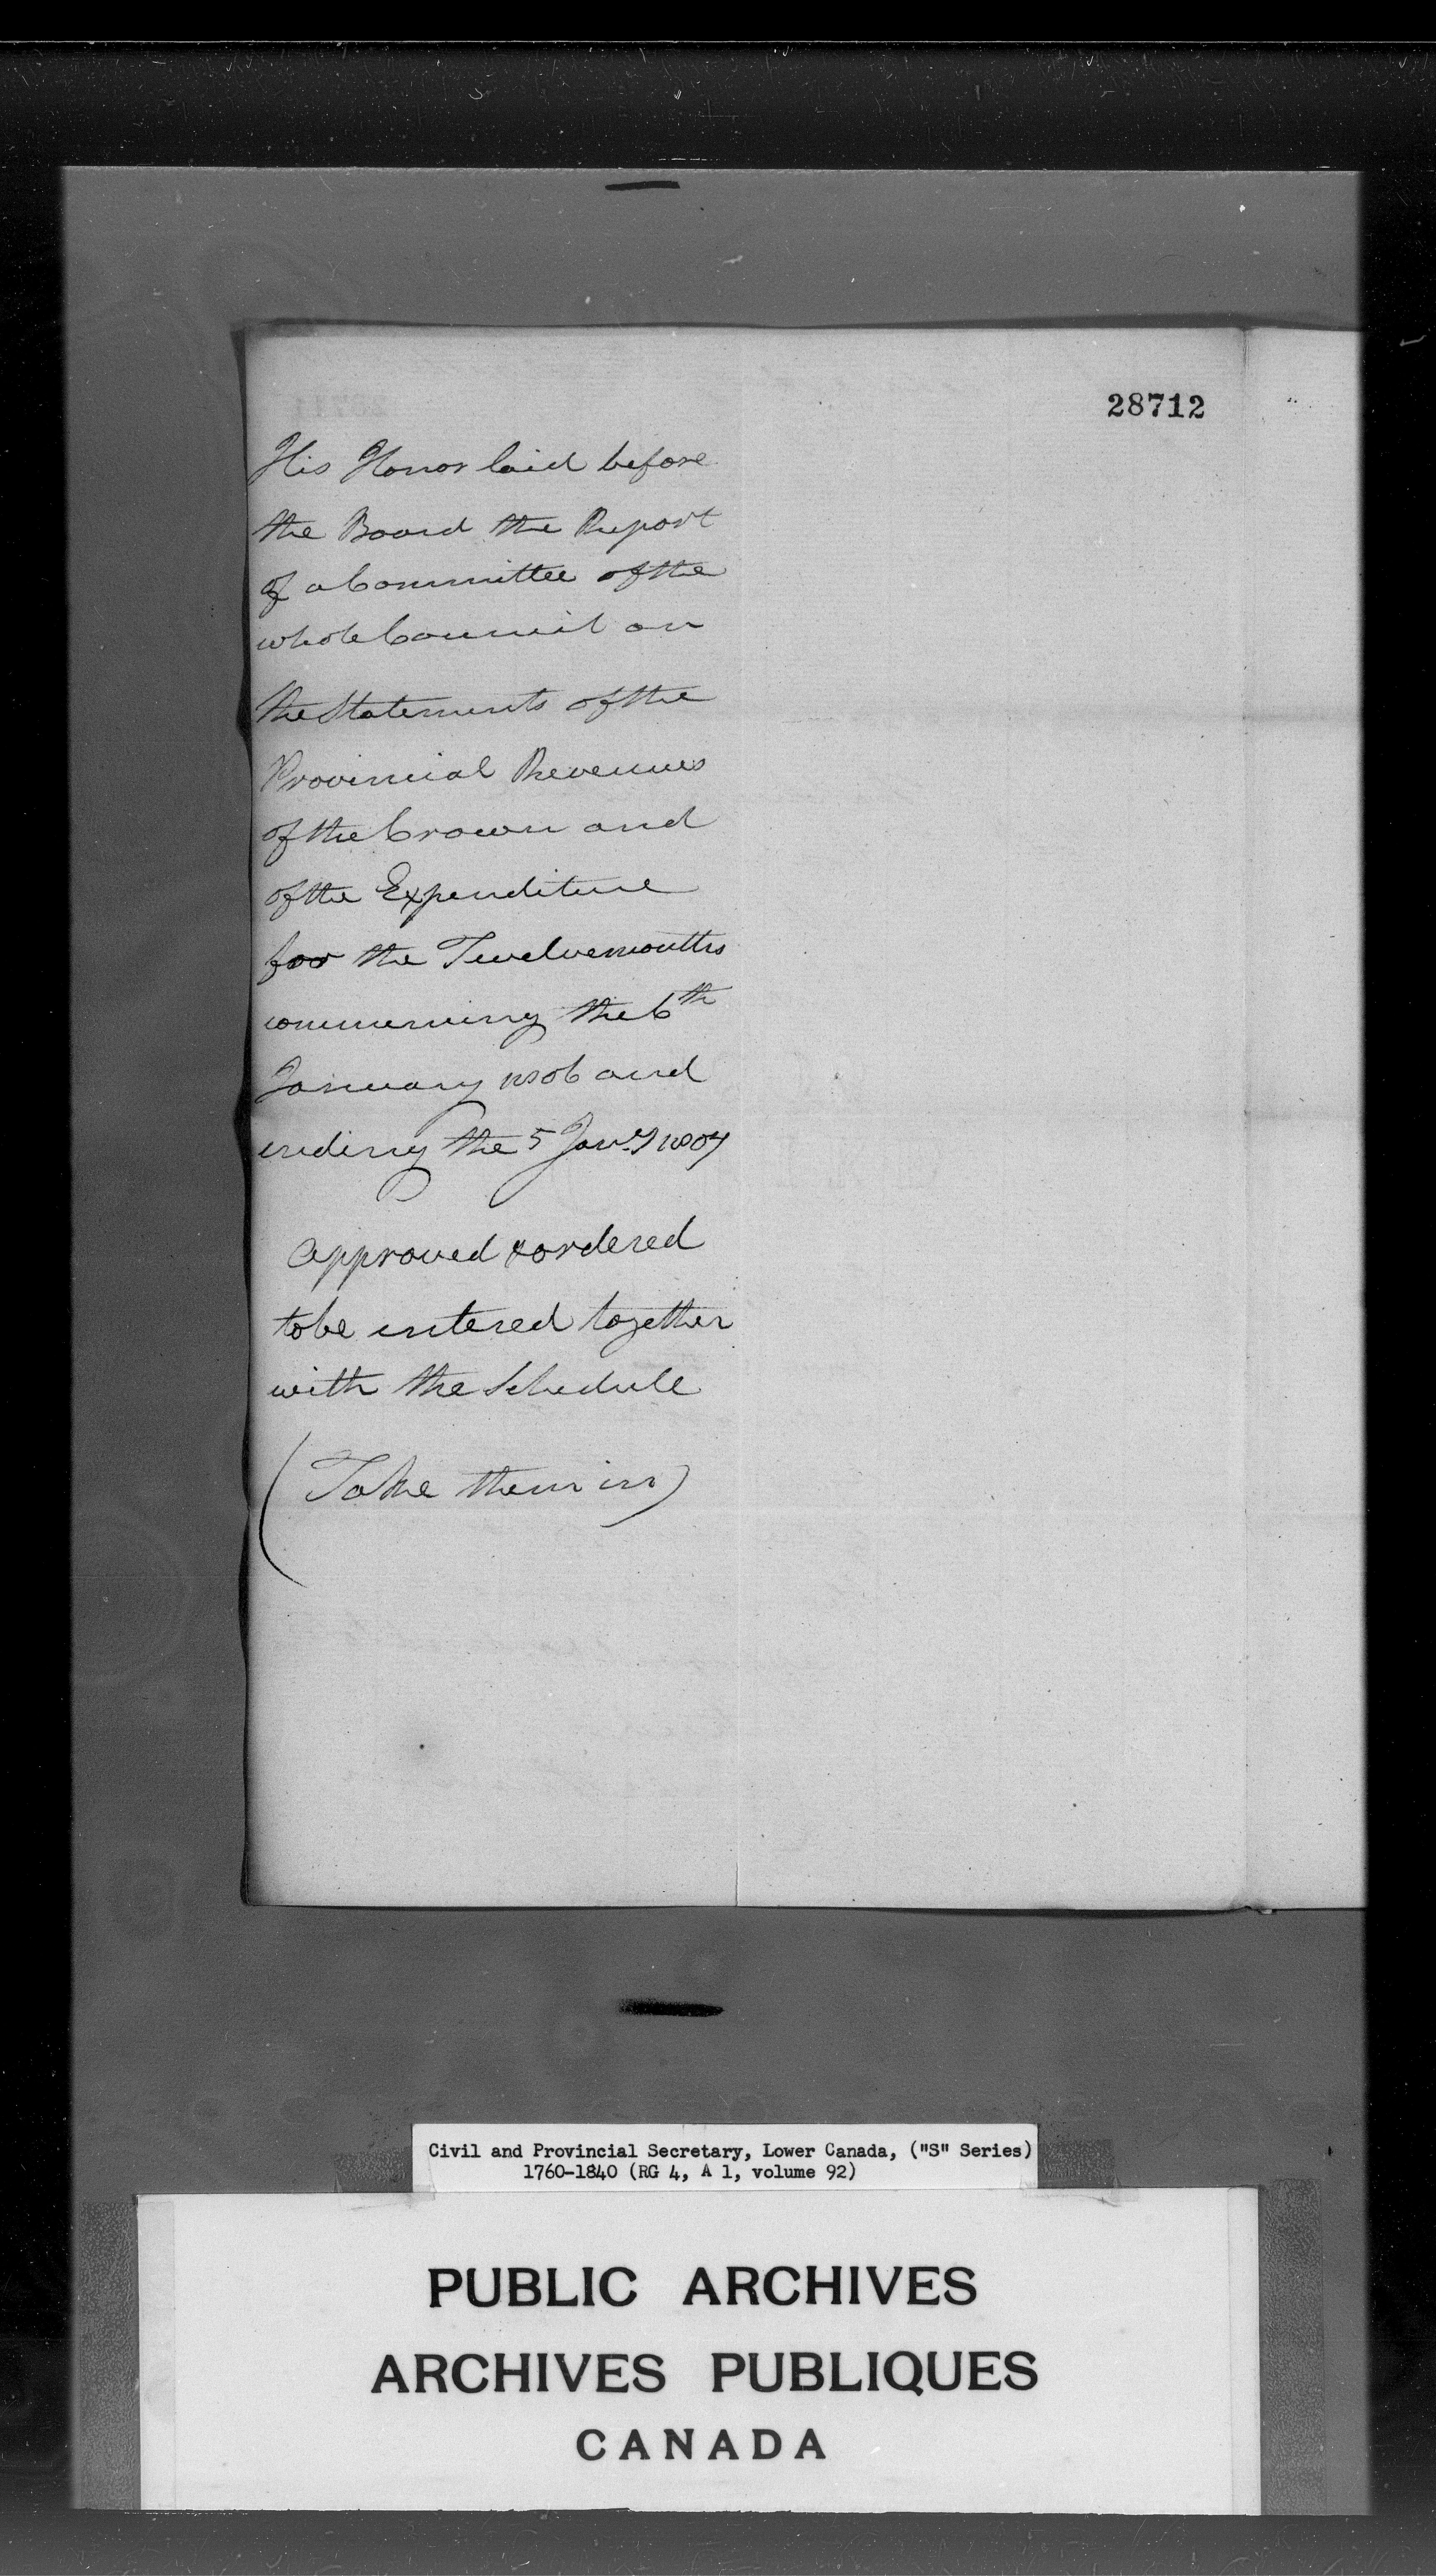 28712
His Honor laid before
the Board the Report
of a Committee of the
whole Council on
the Statements of the
Provincial Revenues
of the Crown and
of the Expenditure
for the Twelvemonths
commencing the 6th
January 1806 and
ending the 5 Jany 1807
approved & ordered
to be entered together
with the Schedule
(Take them in)
Civil and Provincial Secretary, Lower Canada, ("S" Series)
1760-1840 (RG 4, A 1, volume 92)
PUBLIC ARCHIVES
ARCHIVES PUBLIQUES
CANADA